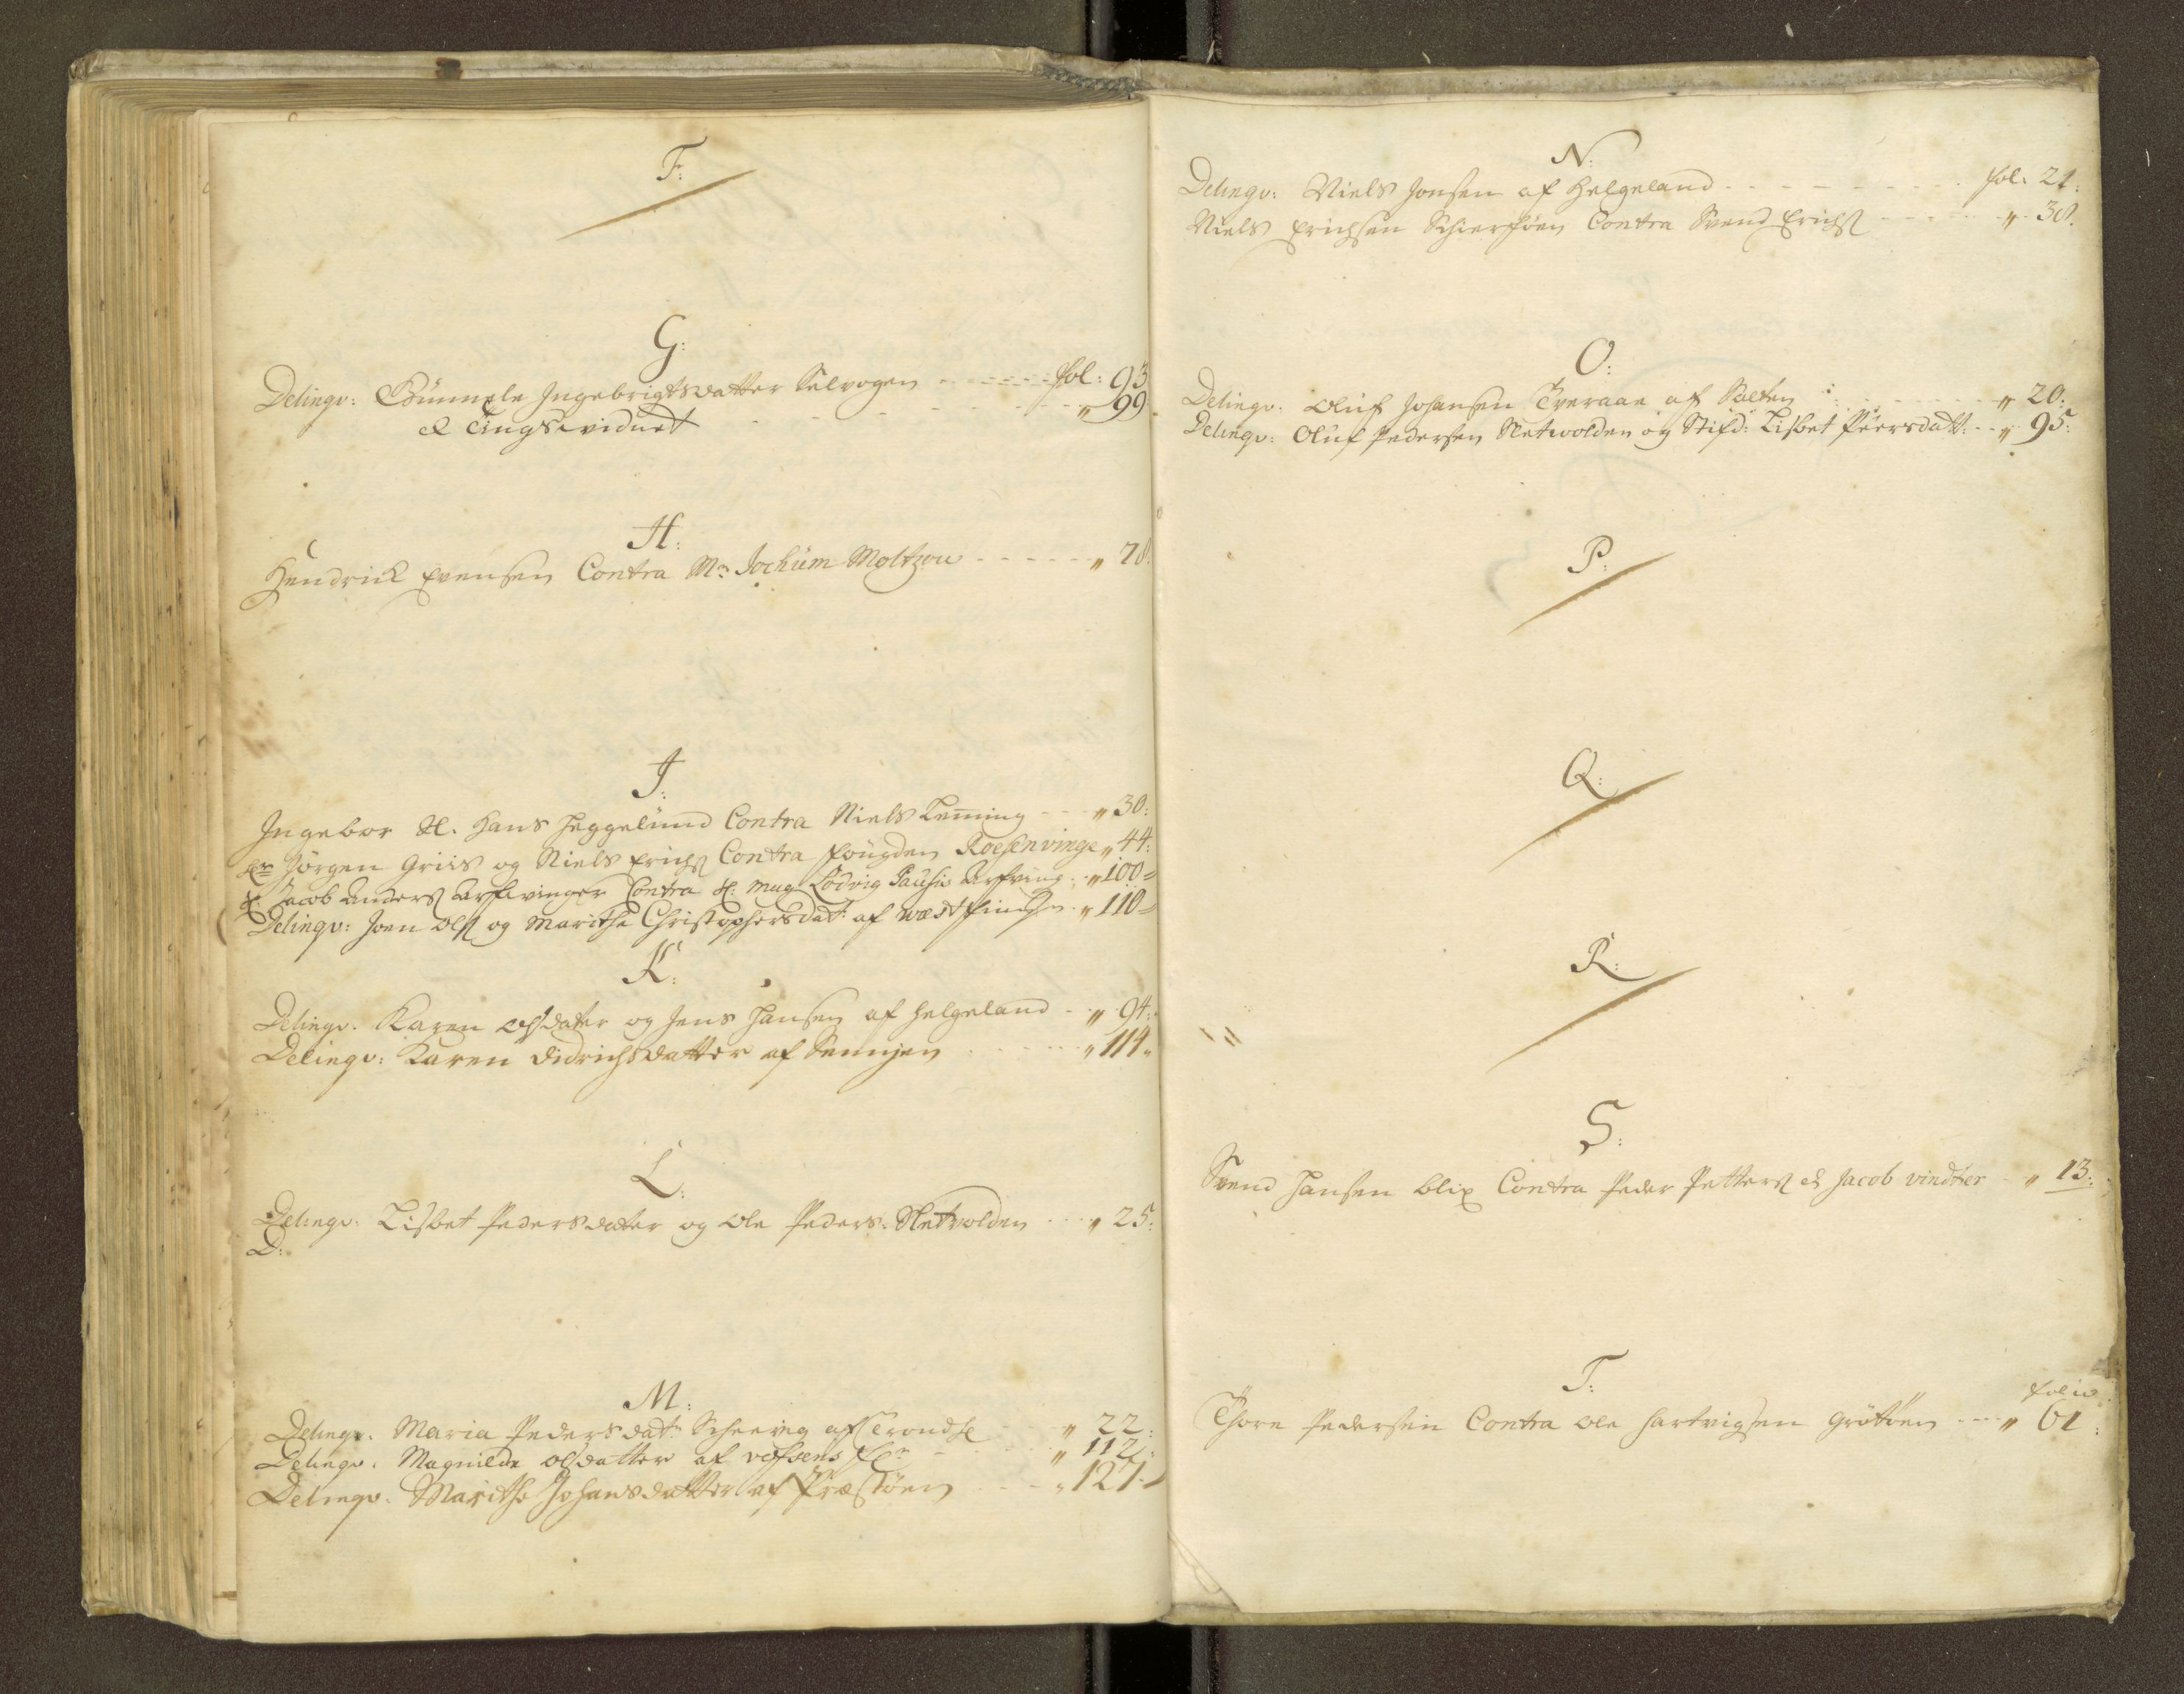 F:
G:
Delinqv: Gunnele Ingebrigtsdatter Selvogen - - - - - fol: 93
et Tingsvidnet - - - - - " 99
H:
Hendrick Evensen Contra Mr Jochum Moltzou - - - - - " 78:
J:
Ingebor Sl. Hans Heggelund Contra Niels Lemming - - - " 30:
Hr Jørgen Griis og Niels Erichs Contra Fougden Roesenvinge " 44:
H: Jacob Anders Arfvinger Contra H: Mag Lodvig Pausis Arfving: " 100
Delinqv: Joen Ols og Marithe Christophersdatt: af " 110
K:
Delinqv: Karen Olsdatter og Jens Hansen af Helgeland - " 94:
Delinqv: Karen Didrichsdatter af Sennjen - - - " 114"
L:
Delinqv: Lisbet Pedersdatter og Ole Peders: Sletvolden - - - " 25:
D:
M:
Delinqv: Maria Pedersdatr Scheevig af - - " 22:
Delinqv: Magnilde Olsdatter af - - " 112:
Delinqv: Marithe Johansdatter af Præstøen - - - " 127
N:
Delinqv: Niels Jonsen af Helgeland - - - - - - fol: 21:
Niels Erichsen Schierføen Contra Svend Erichs - - - - - " 38.
O:
Delinqv: Oluf Johansen Tveraae af Salten - - - - - " 20:
Delinqv: Oluf Pedersen Sletwolden og Stifd: Lisbet Peersdatt: - - " 95:
P:
Q:
R:
S:
Svend Hansen Blix Contra Peder Petters et Jacob vindtier - " 13:
T:
folio
Thore Pedersen Contra Ole Hartvigsen Grøtøen - - - " 61: